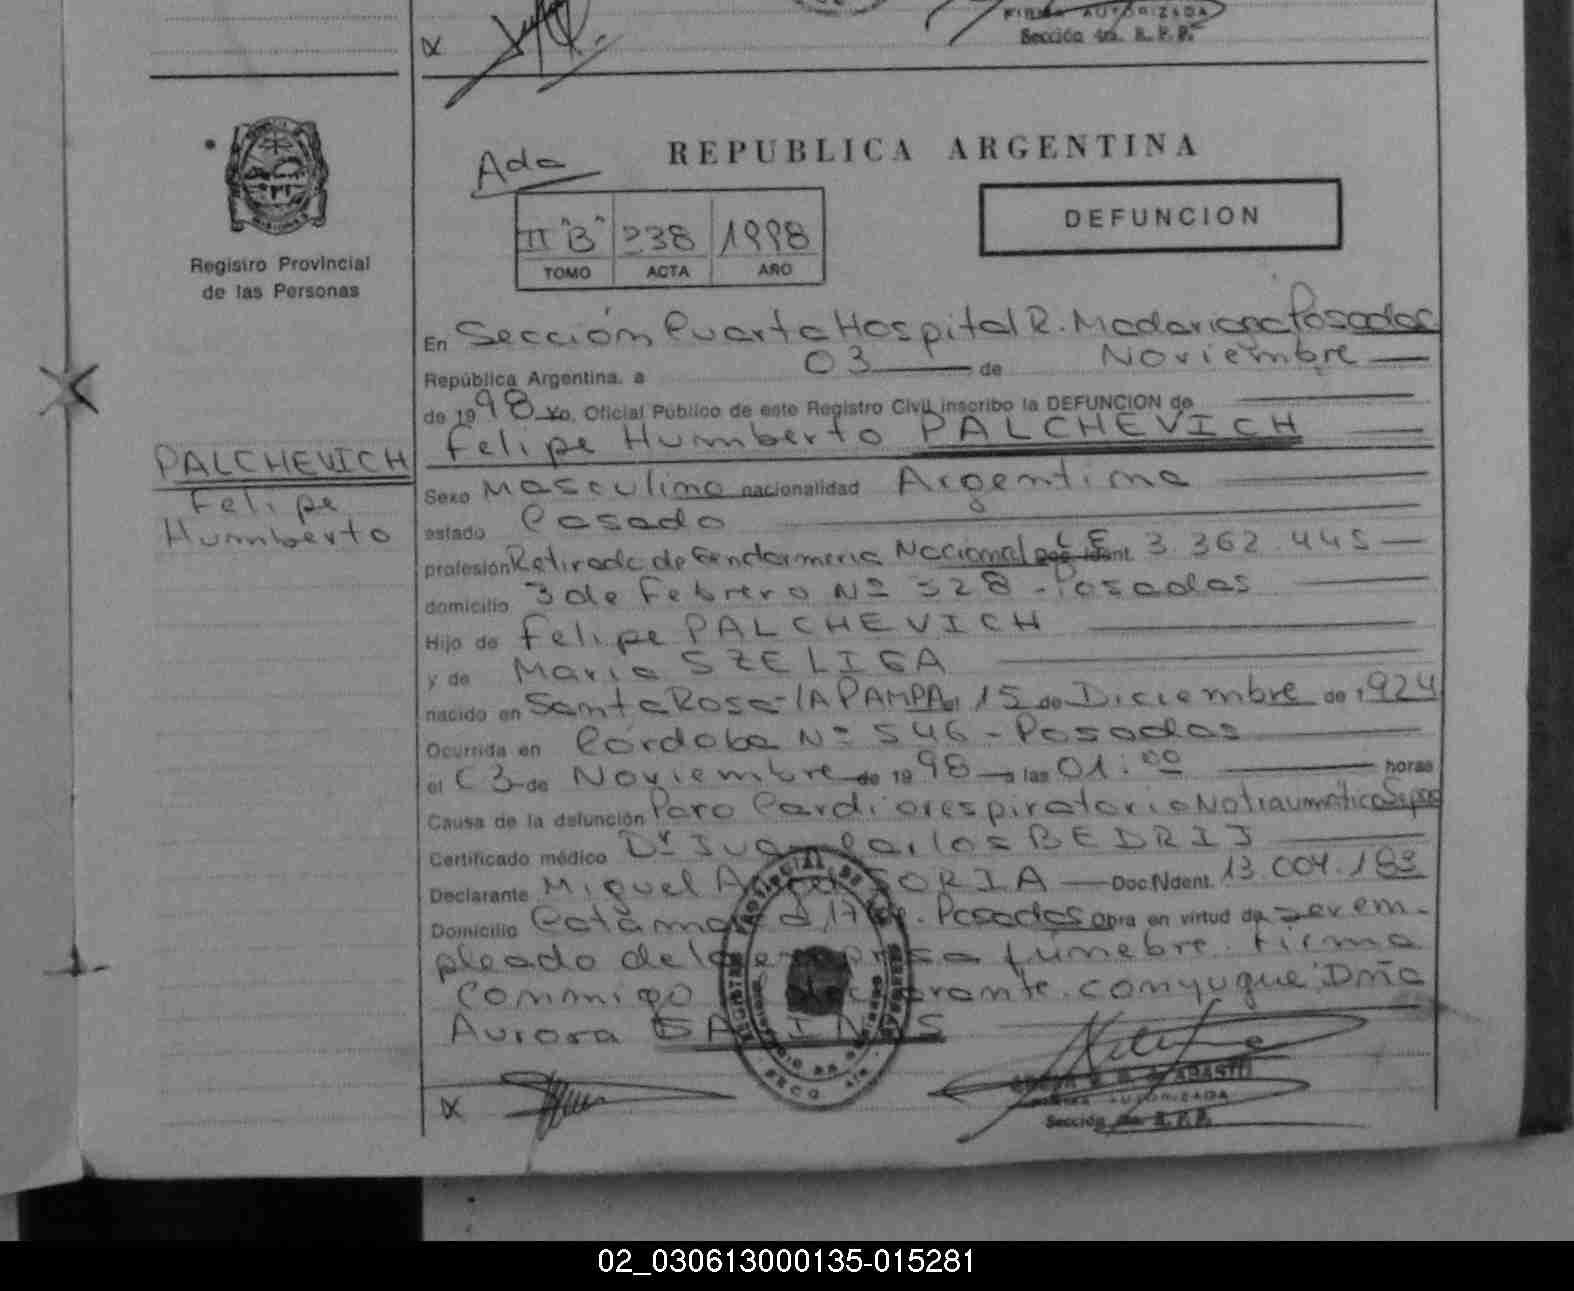 FIRMA AUTORIZADA
Sección 4ta. R. P. P.
Registro Provincial
de las Personas
PALCHEVICH
Felipe
Humberto
Ada
REPUBLICA ARGENTINA
II "B" 238 1998
TOMO ACTA AÑO
DEFUNCION
En Sección Cuarta Hospital R. Madariaga Posadas
República Argentina, a 03 de Noviembre
de 1998 yo, Oficial Público de este Registro Civil, inscribo la DEFUNCION de
Felipe Humberto PALCHEVICH
Sexo Masculino nacionalidad Argentina
estado Casado
profesión Retirado de Gendarmeria Nacional L.E. 3.362.445
domicilio 3 de Febrero Nº 328 - Posadas
Hijo de Felipe PALCHEVICH
y de Maria SZELIGA
nacido en Santa Rosa - LA PAMPA el 15 de Diciembre de 1924
Ocurrida en Córdoba Nº 546 - Posadas
el 03 de Noviembre de 1998 a las 01:00 horas
Causa de la defunción Paro Cardiorespiratorio No traumático
Certificado médico Dr Juan Carlos BEDRIJ
Declarante Miguel SORIA Doc. Ident. 13.004.183
Domicilio Posadas obra en virtud de ser em-
pleado de la empresa fúnebre. Firma
conmigo declarante. conyugue: Dña
Aurora
REGISTRO PROVINCIAL DE
SECC. 4ta
FIRMA AUTORIZADA
Sección 4ta. R. P. P.
02_030613000135-015281